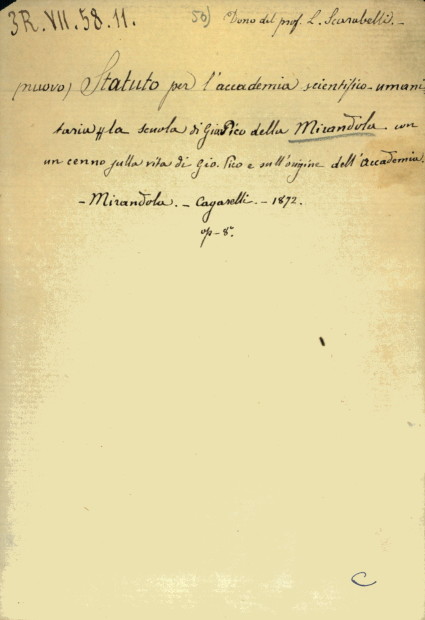 3R.VII.58.11. 50) Dono del prof. L. Scarabelli.-
(nuovo) Statuto per l'accademia scientifico-umani-
taria "la scuola di Gio Pico della Mirandola con
un cenno sulla vita di Gio. Pico e sull'origine dell'Accademia.
- Mirandola. - Cagarelli. - 1872.
op-8°.
C